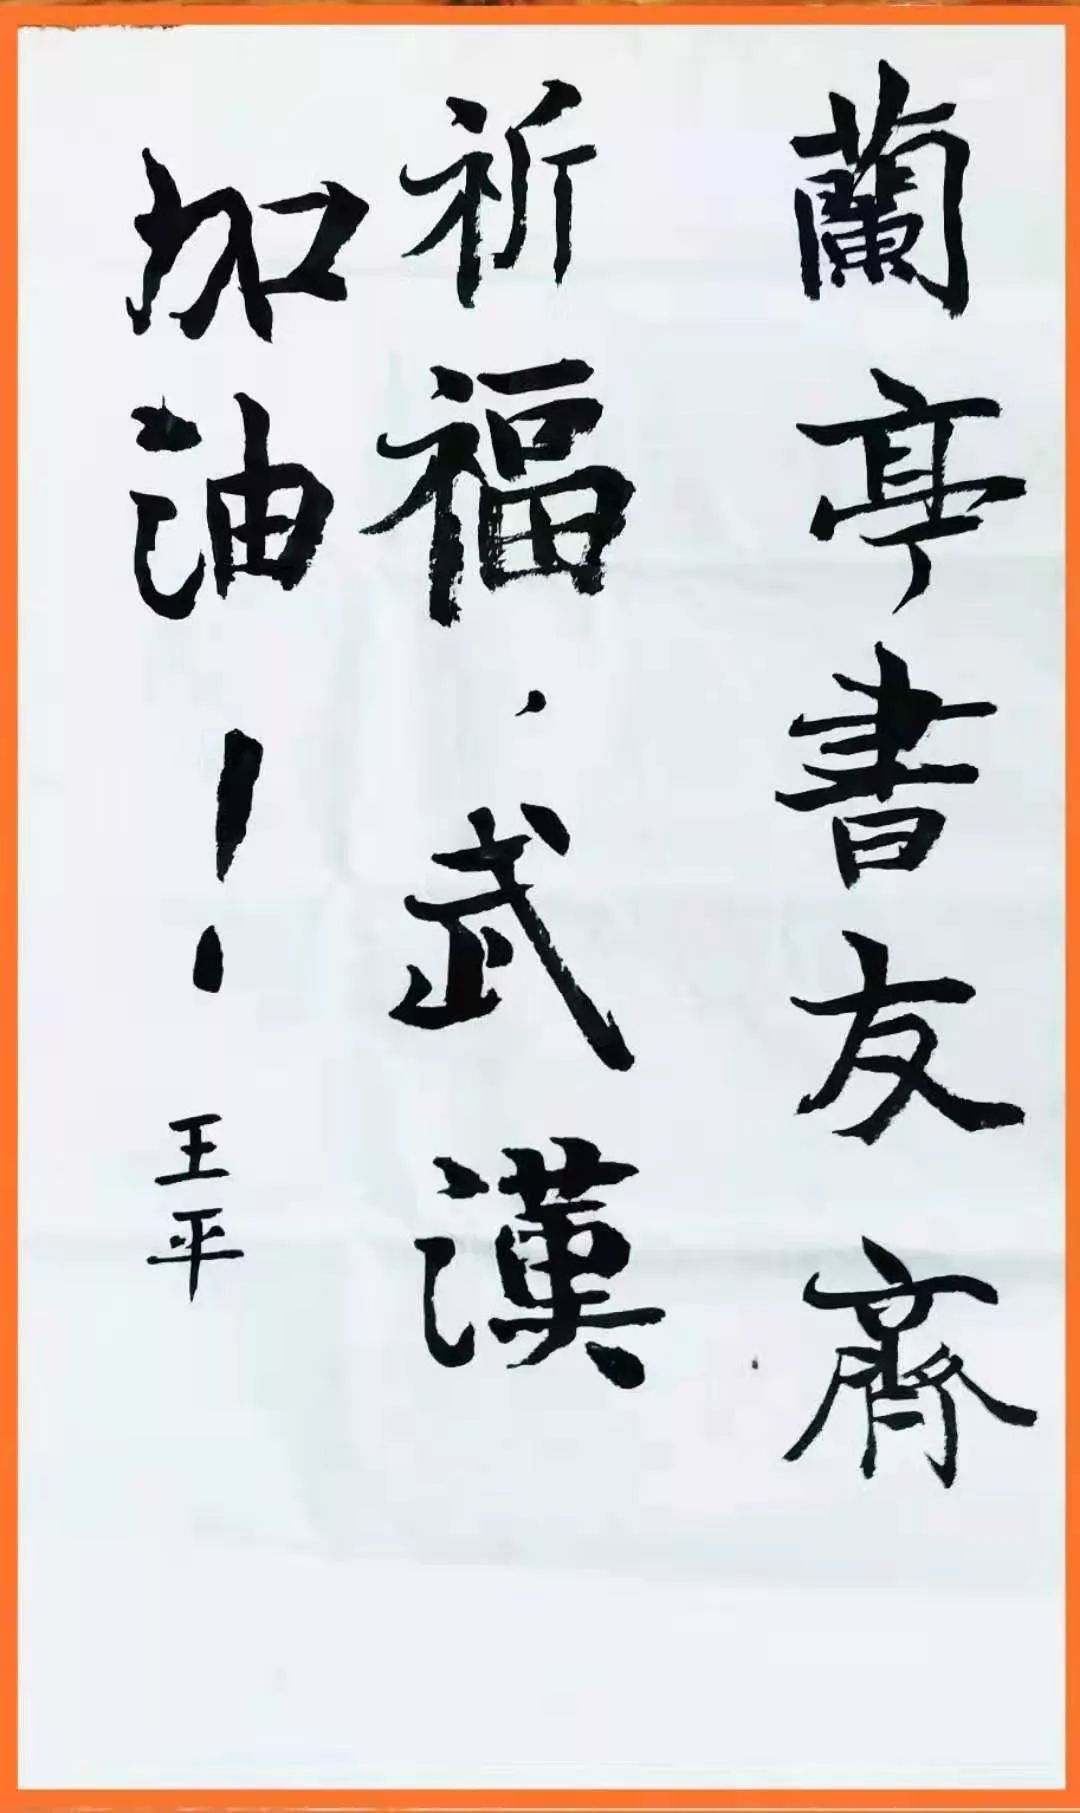 蘭亭書友齊
祈福，武漢
加油！
王平